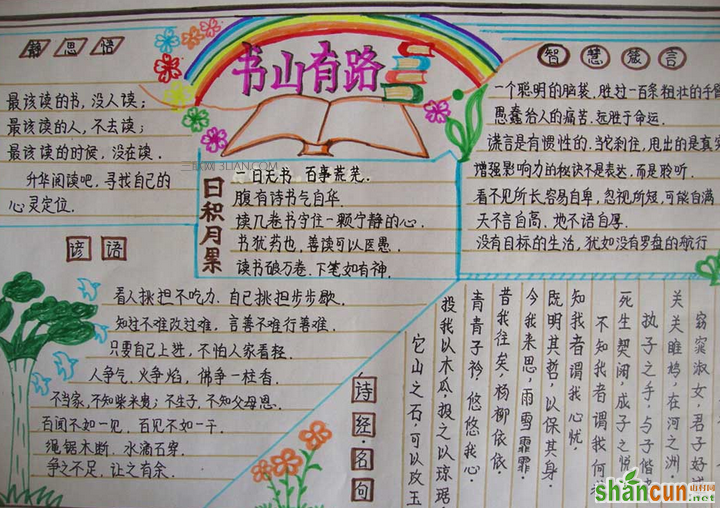 静思语
最该读的书，没人读；
最该读的人，不去读；
最该读的时候，没在读．
升华阅读吧，寻找自己的
心灵定位．
书山有路
智慧箴言
一个聪明的脑袋．胜过一百条粗壮的手臂
愚蠢给人的痛苦．远胜于命运．
谎言是有惯性的．当蛇利住，甩出的是真实
增强影响力的秘诀不是表达，而是聆听．
看不见所长，容易自卑，忽视所短，可能自满
天不言自高、地不语自厚．
没有目标的生活，犹如没有罗盘的航行
日积月累
一日无书 百事荒芜．
腹有诗书气自华．
读几卷书守住一颗宁静的心．
书犹药也，善读可以医愚．
读书破万卷．下笔如有神．
三联网 3LIAN.COM
谚语
看人挑担不吃力．自己挑担步步歇．
知过不难改过难，言善不难行善难．
只要自己上进，不怕人家看轻．
人争气．火争焰，佛争一柱香．
不当家，不知柴米贵；不生子，不知父母恩．
百闻不如一见，百见不如一干．
绳锯木断．水滴石穿．
争之不足，让之有余．
诗经名句
窈窕淑女．君子好
关关雎鸠，在河之洲
执子之手，与子偕
死生契阔，成子之悦
不知我者谓我何
知我者谓我心忧，
既明其哲，以保其身．
今我来思，雨雪霏霏
昔我往矣，杨柳依依
青青子衿，悠悠我心．
投我以木瓜，报之以琼琚．
它山之石，可以攻玉
shancun
山村网
.net